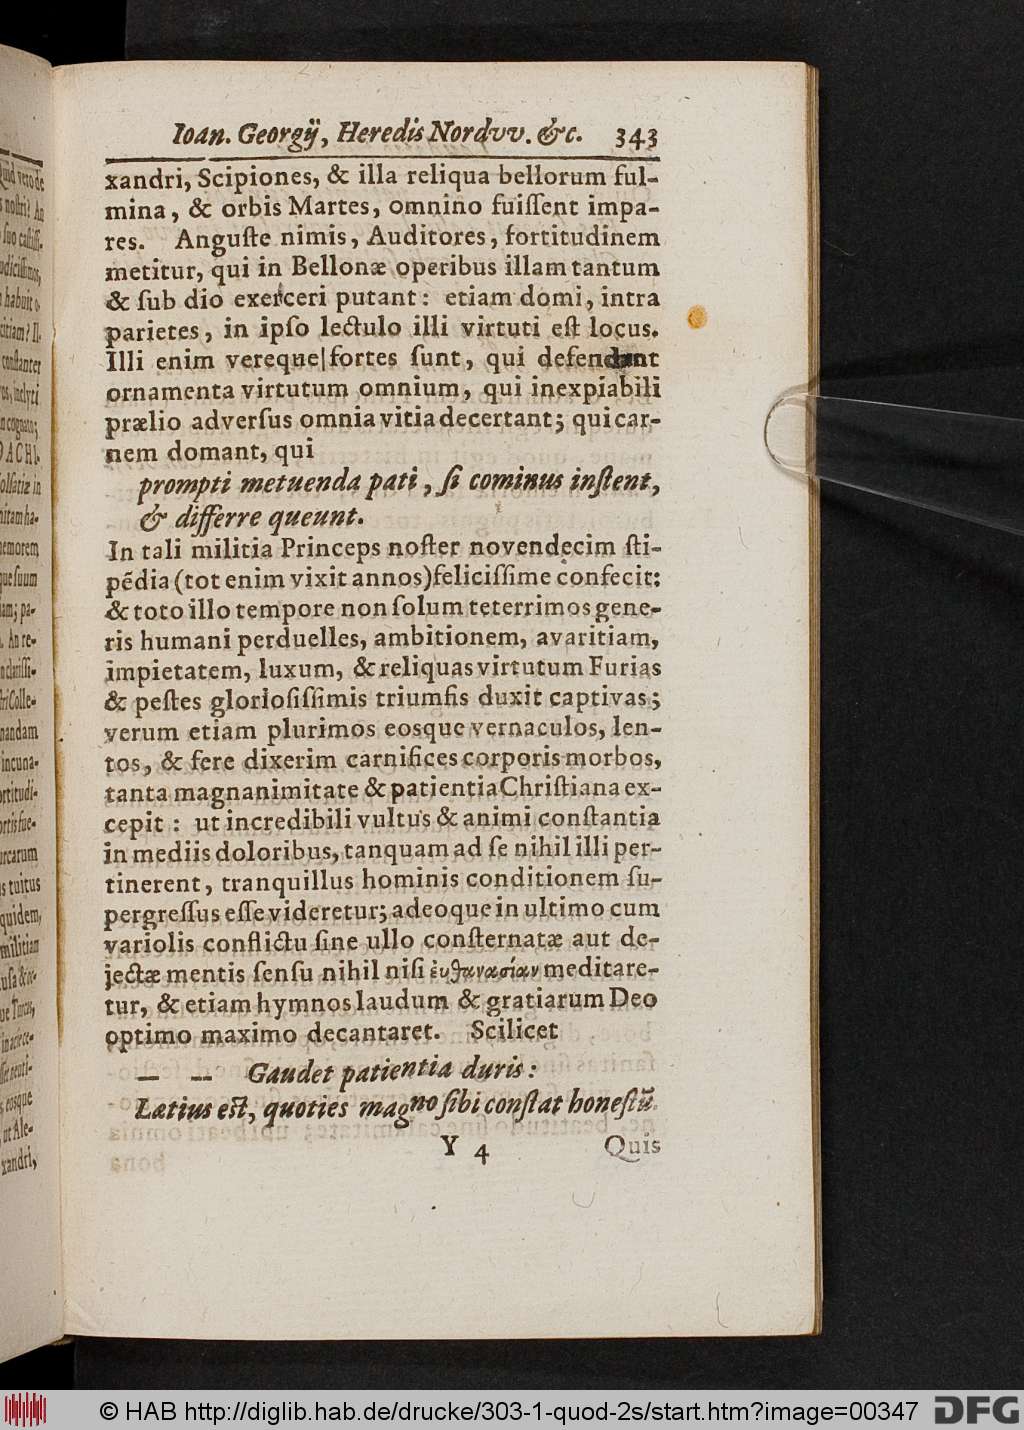 Ioan. Georgij, Heredis Nordvv. &c. 343
xandri, Scipiones, & illa reliqua bellorum ful-
mina, & orbis Martes, omnino fuiſſent impa-
res. Anguſte nimis, Auditores, fortitudinem
metitur, qui in Bellonæ operibus illam tantum
& ſub dio exerceri putant: etiam domi, intra
parietes, in ipſo lectulo illi virtuti eſt locus.
Illi enim vereque|fortes ſunt, qui defendunt
ornamenta virtutum omnium, qui inexpiabili
prælio adverſus omnia vitia decertant; qui car-
nem domant, qui
prompti metuenda pati, ſi cominus inſtent,
& differre queunt.
In tali militia Princeps noſter novendecim ſti-
pēdia (tot enim vixit annos) feliciſſime confecit:
& toto illo tempore non ſolum teterrimos gene-
ris humani perduelles, ambitionem, avaritiam,
impietatem, luxum, & reliquas virtutum Furias
& peſtes glorioſiſſimis triumfis duxit captivas;
verum etiam plurimos eosque vernaculos, len-
tos, & fere dixerim carnifices corporis morbos,
tanta magnanimitate & patientia Chriſtiana ex-
cepit: ut incredibili vultus & animi conſtantia
in mediis doloribus, tanquam ad ſe nihil illi per-
tinerent, tranquillus hominis conditionem ſu-
pergreſſus eſſe videretur; adeoque in ultimo cum
variolis conflictu ſine ullo conſternatæ aut de-
jectæ mentis ſenſu nihil niſi ἐυθανασίαν meditare-
tur, & etiam hymnos laudum & gratiarum Deo
optimo maximo decantaret. Scilicet
— — Gaudet patientia duris:
Lætius eſt, quoties magno ſibi conſtat honeſtū.
Y 4 Quis
© HAB http://diglib.hab.de/drucke/303-1-quod-2s/start.htm?image=00347
DFG